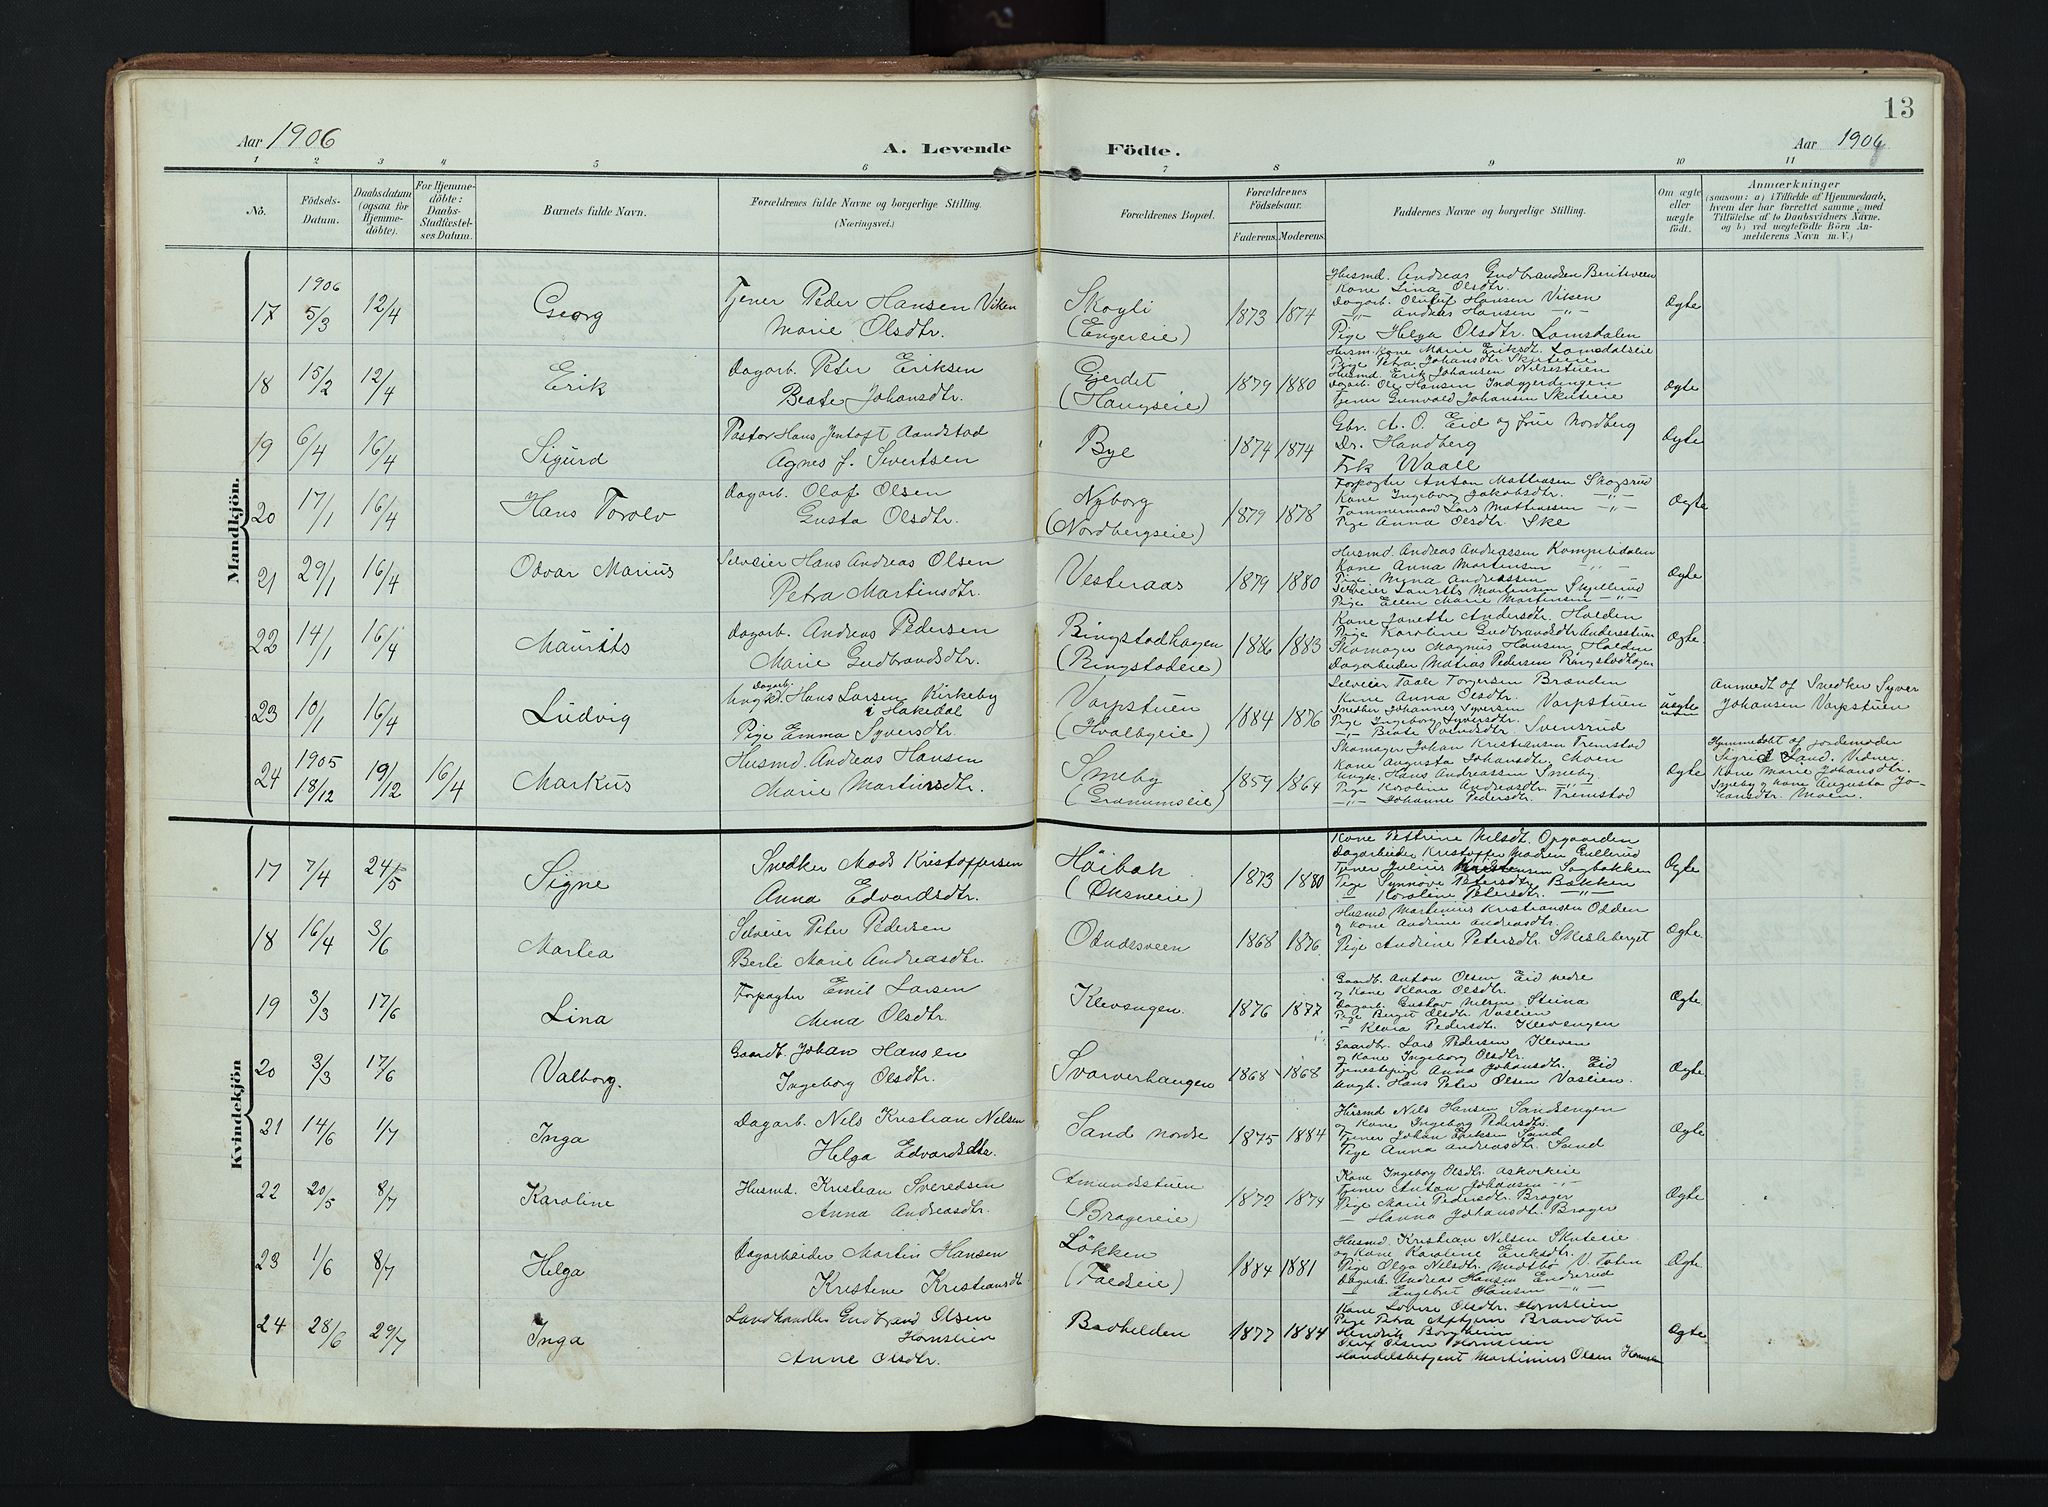 13
Aar 1906
A. Levende Födte.
Aar 1906
1 2 3 4 5 6 7 8 9 10 11
No.
Födsels-Datum.
Daabsdatum (ogsaa for Hjemmedöbte).
For Hjemmedöbte: Daabs-Stadfæstelses Datum.
Barnets fulde Navn.
Forældrenes fulde Navne og borgerlige Stilling.
(Næringsvei.)
Forældrenes Bopæl.
Forældrenes Födselsaar.
Faderens. Moderens.
Faddernes Navne og borgerlige Stilling.
Om ægte eller uægte födt.
Anmærkninger
(saasom: a) i Tilfælde af Hjemmedaab, hvem der har forrettet samme, med Tilföielse af to Daabsvidners Navne. og b) ved uægtefödte Börn Anmelderens Navn m. V.)
Mandkjön.
17 1906 5/3 12/4 Georg
Tjener Peder Hansen Viken
Marie Olsdtr.
Skogli
(Engereie)
1873 1874
Husmd. Andreas Gudbrandsen Beritsveen
Kone Lina Olsdtr.
Dagarb. Hansen Viksen
-"- Andreas Hansen -"-
Pige Helga Olsdtr. Lomsdalen
Ægte
18 15/2 12/4 Erik
Dagarb. Peter Eriksen
Beate Johansdtr.
Gjerdet
(Haugseie)
1879 1880
Husm. Kone Marie Eriksdt. Lomsdalseie
Pige Petra Johansdtr. Skuteeie
Husmd. Erik Johansen Nilsestuen
Dagarb. Ole Hansen Indgjerdingen
Tjener Gunvald Johansen Skuteeie
Ægte
19 6/4 16/4 Sigurd
Pastor Hans Jentoft Aandstad
Agnes J. Sivertsen
Bye
1874 1874
Gbr. A. O. Eid og frue Nordberg
Dr. Handberg
Frk Waall
Ægte
20 17/1 16/4 Hans Torolv
Dagarb. Olaf Olsen
Gusta Olsdtr.
Nyborg
(Nordbergseie)
1879 1878
Forpagter Anton Mathiasen Skogsrud
Kone Ingeborg Jakobsdtr. -"-
Tømmermand Lars Mathiassen -"-
Pige Anna Olsdtr. Ske
Ægte
21 29/1 16/4 Odvar Marius
Selveier Hans Andreas Olsen
Petra Martinsdtr.
Vesteraas
1879 1880
Husmd. Andreas Andreassen
Kone Anna Mortensen -"-
Pige Mina Andreassen
Selveier Laurits Mortensen Skjellerud
Pige Ellen Marie Mortensen -"-
Ægte
22 14/1 16/4 Maurits
Dagarb. Andreas Pedersen
Marie Gudbrandsdtr.
Ringstadhagen
(Ringstadeie)
1886 1883
Kone Janette Andersdtr. Holden
Pige Karoline Gudbrandsdtr. Andersstuen
Skomager Magnus Hansen Holden
Dagarbeider Matias Pedersen Ringstadhagen
Ægte
23 10/1 16/4 Ludvig
Dagarb.
Ungk. Hans Larsen Kirkeby
i Hakedal
Pige Emma Syversdtr.
Varpstuen
(Hvalbyeie)
1884 1876
Selveier Taale Torgersen Brænden
Kone Anna Olsdtr.
Snedker Johannes Syversen Varpstuen
Pige Ingeborg Syversdtr.
-"- Beate Svendsdtr. Svensrud
uægte
Anmedt af Snedker Syver
Johansen Varpstuen
24 1905 18/12 19/12 16/4 Markus
Husmd. Andreas Hansen
Marie Martinsdtr.
Smeby
(Granumseie)
1859 1864
Skomager Johan Kristiansen Tremstad
Kone Augusta Johansdtr. Moen
Ungk. Hans Andreassen Smeby
Pige Karoline Andreasdtr. -"-
-"- Johanne Pedersdtr. Tremstad
Ægte
Hjemmedøbt af jordemoder
Sigrid Sand. Vidner
Kone Marie Johansdtr.
Smeby, kone Augusta Jo-
hansdtr. Moen
Kvindekjön
17 7/4 24/5 Signe
Snedker Mads Kristoffersen
Anna Edvardsdtr.
Høibak
(Oksneeie)
1873 1880
Kone Petrine Nilsdt. Opgaarden
Dagarbeider Kristoffer Madsen Gullerud
Tjener Julius Kristensen Sagbakken
Pige Synnøve Petersdtr. Bækken
-"- Karoline Petersdtr. -"-
Ægte
18 16/4 3/6 Martea
Selveier Peter Pedersen
Berte Marie Andreasdtr.
Odnæsveen
1868 1876
Husmd Martinius Kristiansen Odden
og Kone Andrine Andreasdtr.
Pige Andrine Petersdtr. Skesleberget
Ægte.
19 3/3 17/6 Lina
Forpagter Emil Larsen
Mina Olsdtr.
Klevsengen.
1876 1877
Gaardb. Anton Olsen Eid nedre
og Kone Klara Olsdtr.
Dagarb. Gustav Nilsen Steina
Pige Birgit Olsdtr. Vaslien
- Klara Pedersdtr. Klevsengen
Ægte
20 3/3 17/6 Valborg.
Gaardb. Johan Hansen
Ingeborg Olsdtr.
Svarverhaugen
1868 1868
Gaardbr. Lars Pedersen Kleven
og Kone Ingeborg Olsdtr.
Tjenestepige Anna Johansdtr. Eid
Ungk. Hans Peter Olsen Vaslien.
Ægte
21 14/6 1/7 Inga
Dagarb. Nils Kristian Nilsen
Helga Edvardsdtr.
Sand nordre
1875 1884
Husmd Nils Hansen Sandsengen
og Kone Ingeborg Pedersdtr.
Tjener Johan Eriksen Sand
Pige Anna Andreasdtr. Sand
Ægte
22 20/5 8/7 Karoline
Husmd. Kristian Sveredsen
Anna Andreasdtr.
Amundsstuen
(Bragereie)
1872 1874
Kone Ingeborg Olsdtr. Askerkeie
Tjener Anton Johansen -"-
Pige Marie Pedersdtr. Brager
- Hanna Johansdtr. Brager
Ægte
23 1/6 8/7 Helga
Dagarbeider Martin Hansen
Kristine Kristiansdtr.
Løkken
(Faldseie)
1884 1881
Husmd Kristian Nilsen Skuteeie
og Kone Karoline Eriksdtr.
Pige Olga Nilsdtr. Medtbø V. Toten
Dagarb. Andreas Hansen Enderud
- Engebret Hansen -"-
Ægte
24 28/6 29/7 Inga
Landhandler Gudbrand Olsen
Hornslien
Anne Olsdtr.
Badhelden
1877 1884
Kone Lovise Olsdtr. Hornslien
Pige Petra Brandbu
Hendrik Borgheim
Olaf Olsen Hornslien
Handelsbetjent Martinius Olsen Hornslien
Ægte